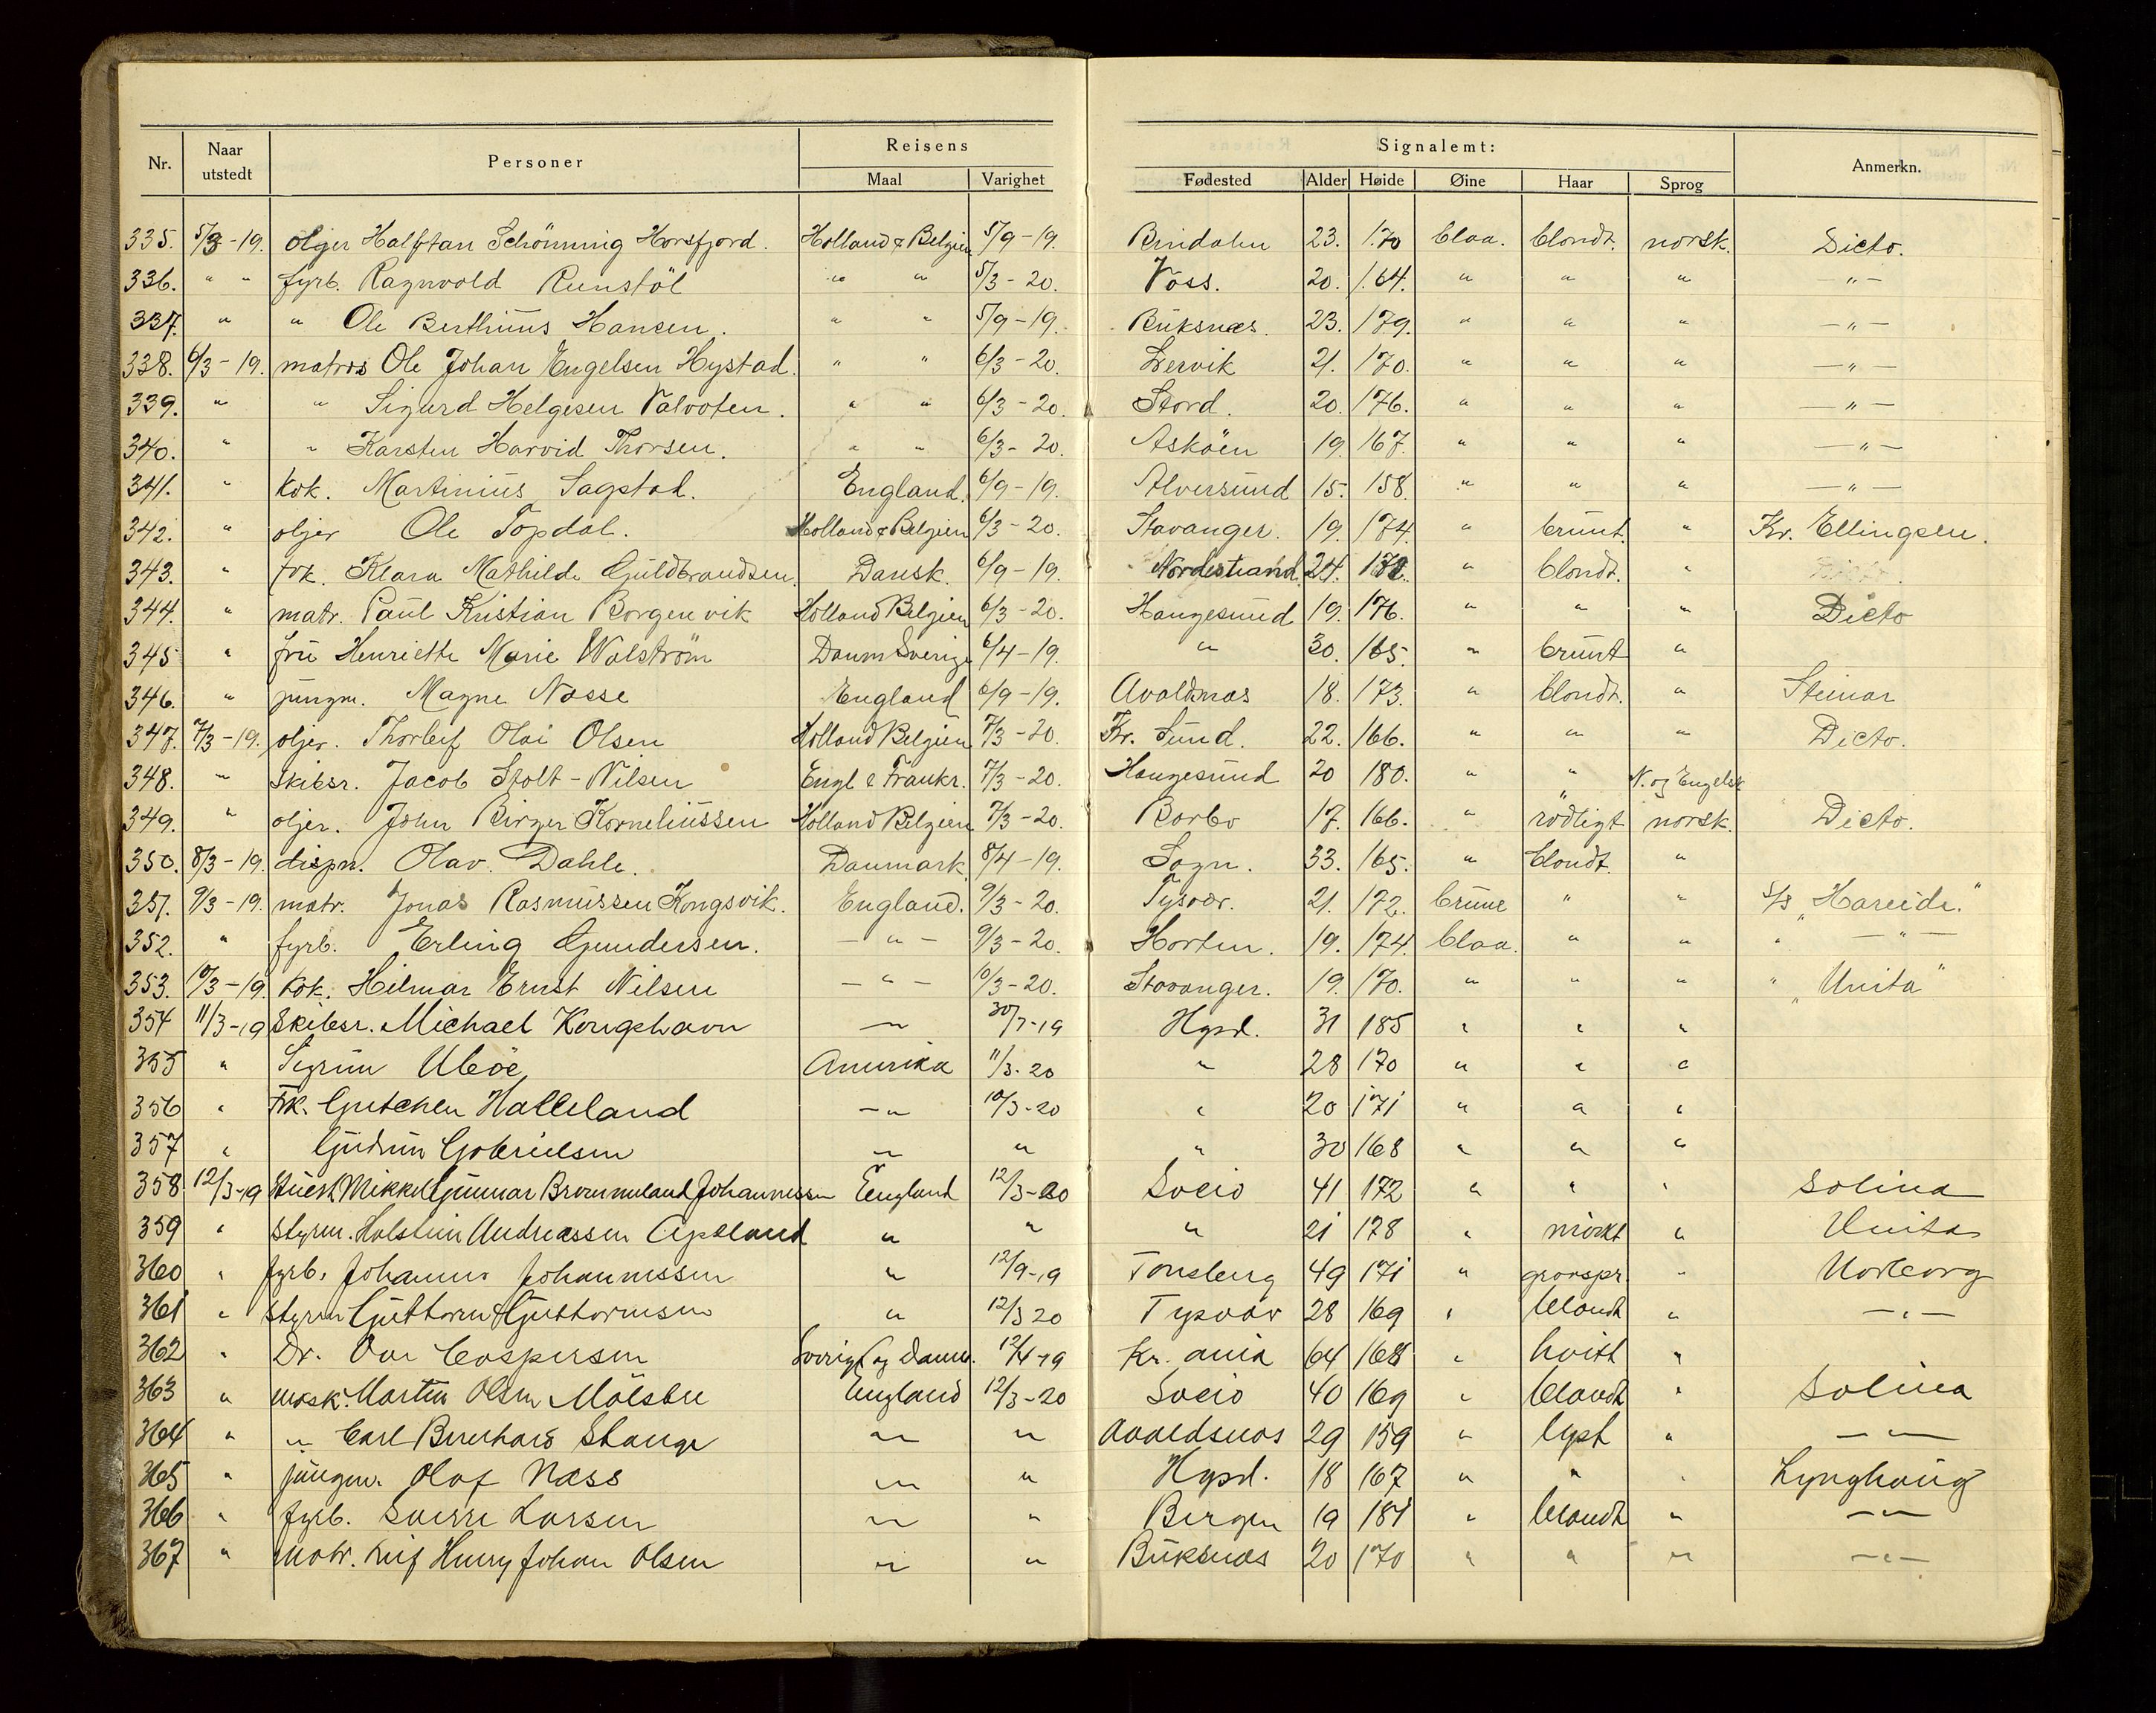 Nr. Naar utstedt Personer Reisens Maal Varighet Signalemt: Fødested Alder Høide Øine Haar Sprog Anmerkn.
335. 5/3-19. oljer Halftan Schönning Horsfjord. Holland & Belgien 5/9-19. Bindalen 23. 1.70 blaa. blondt. norsk. Dicto.
336. " " fyrb. Ragnvold Runstöl " " 5/3-20. Voss. 20. 1.64. " " " -"-
337. " " Ole Berthinus Hansen. " " 5/9-19. Buksnæs. 23. 179. " " " -"-
338. 6/3-19. matros Ole Johan Engelsen Hystad. " " 6/3-20. Lervik 21. 170. " " " -"-
339. " " Sigurd Helgesen Valvoten. " " 6/3-20. Stord. 20. 176. " " " -"-
340. " " Karsten Harvid Thorsen. " " 6/3-20. Asköen 19. 167. " " " -"-
341. " kok. Martinius Sagstad. England. 6/9-19. Alversund 15. 158. " " " -"-
342. " oljer Ole Topdal. Holland & Belgien 6/3-20. Stavanger. 19. 174. " brunt. " Kr. Ellingsen.
343. " frk. Klara Mathilde Guldbrandsen. Dansk. 6/9-19. Nordestrand. 24. " blondt. "
344. " matr. Paul Kristian Borgenvik Holland Belgien 6/3-20. Haugesund 19. 176. " " " Dicto
345 " fru Henriette Marie Walström Danm Sverige 6/4-19. " 30. 165. " brunt "
346. " jungm. Magne Nosse England 6/9-19. Avaldsnæs 18. 173. " blondt. " Steinar
347. 7/3-19. oljer. Thorleif Olai Olsen Holland Belgien 7/3-20. Kr. Sund. 22. 166. " " " Dicto.
348. " skibsr. Jacob Stolt-Nilsen Engl & Frankr. 7/3-20. Haugesund 20 180. " " N. og Engelsk
349. " oljer. John Birger Korneliussen Holland Belgien 7/3-20. Borbo 17. 166. " rödligt norsk. Dicto.
350. 8/3-19. dispn. Olav. Dahle. Danmark. 8/4-19. Sogn. 33. 165. " blondt. "
351. 9/3-19. matr. Jonas Rasmussen Kongsvik. England. 9/3-20. Tysvær. 21. 172. brune " " S/S "Hareide."
352. " fyrb. Erling Gundersen. -"- 9/3-20. Horten. 19. 174. blaa. " " " -"-
353. 10/3-19. kok. Hilmar Ernst Nilsen -"- 10/3-20. Stavanger. 19. 170. " " " " "Unita"
354 11/3-19 Skibsr. Michael Kongshavn -"- 30/7-19 Hgsd. 31 185 " " "
355 " Sigrun Uböe Amerika 11/3-20 " 28 170 " " "
356 " Frk. Gretchen Halleland -"- 10/3-20 " 20 171 " " "
357 " Gudrun Gabrielsen " " " 30 168 " " "
358 12/3-19 Stuert Mikkel Gunnar Brommeland Johannessen England 12/3-20 Sveio 41 172 " " " Solina
359 " styrm. Holstein Andreassen Apeland " " " 21 178 " mörkt " Unita
360 " fyrb. Johannes Johannessen " 12/9-19 Tönsberg 49 171 " graaspr. " Norborg
361 " styrm Guttorm Guttormsen " 12/3 20 Tysvær 28 169 " blondt " -"-
362 " Dr. Ove Caspersen Sverige og Danm. 12/4-19 Kr. ania 64 168 " hvitt "
363 " mask. Martin Olsen Mölstre England 12/3-20 Sveio 40 169 " blondt " Solina
364 " " Carl Bernhard Stange " " Avaldsnæs 29 159 " lyst " -"-
365 " jungm. Olaf Næss " " Hgsd. 18 167 " " " Lynghaug
366 " fyrb. Sverre Larsen " " Bergen 19 181 " blondt " -"-
367 " Matr. Leif Henry Johan Olsen " " Buksnæs 20 170 " " " -"-